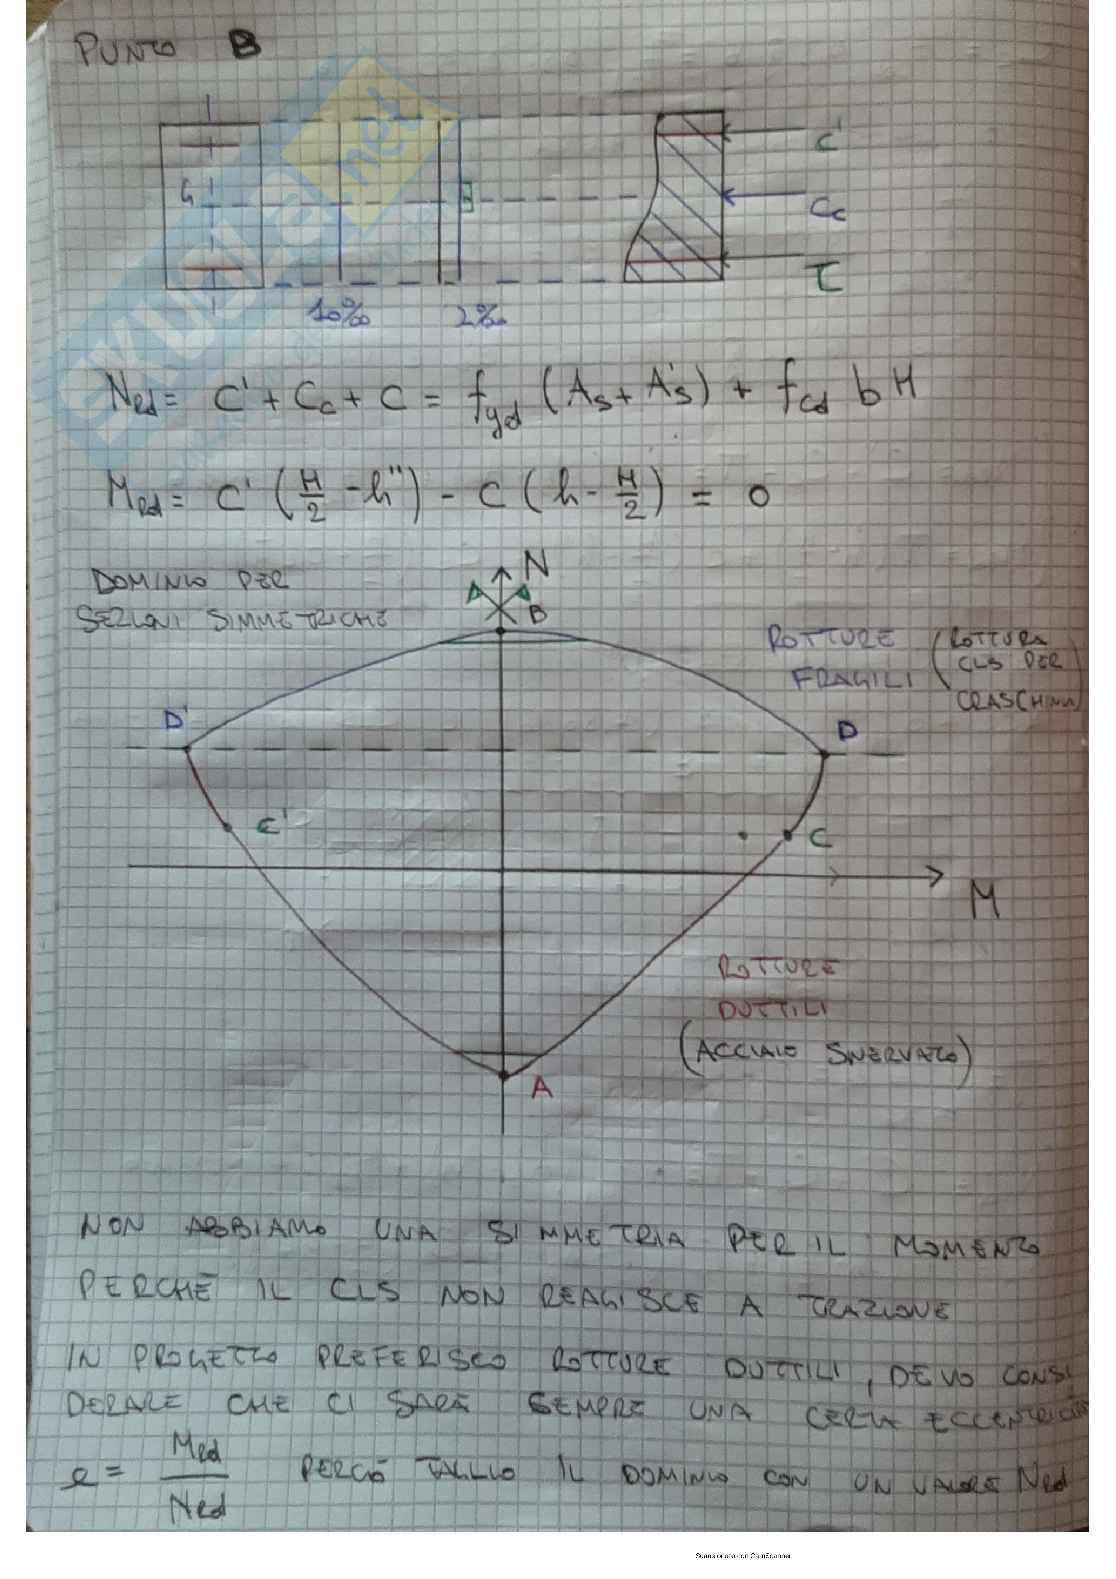 PUNTO B
G
C'
Cc
C
10‰
2‰
NRd = C' + Cc + C = fyd (As + A's) + fcd b H
MRd = C' (H/2 - h'') - C (h - H/2) = 0
N
DOMINIO PER
SEZIONI SIMMETRICHE
B
ROTTURE
FRAGILI
(ROTTURA
CLS PER
D'
D
C'
C
M
ROTTURE
DUTTILI
(ACCIAIO SNERVATO)
A
NON ABBIAMO UNA SIMMETRIA PER IL MOMENTO
PERCHÉ IL CLS NON REAGISCE A TRAZIONE
IN PROGETTO PREFERISCO ROTTURE DUTTILI, DEVO CONSI
DERARE CHE CI SARÀ SEMPRE UNA CERTA ECCENTRICITÀ
e = MRd / NRd PERCIÒ TAGLIO IL DOMINIO CON UN VALORE NRd
Scansionato con CamScanner